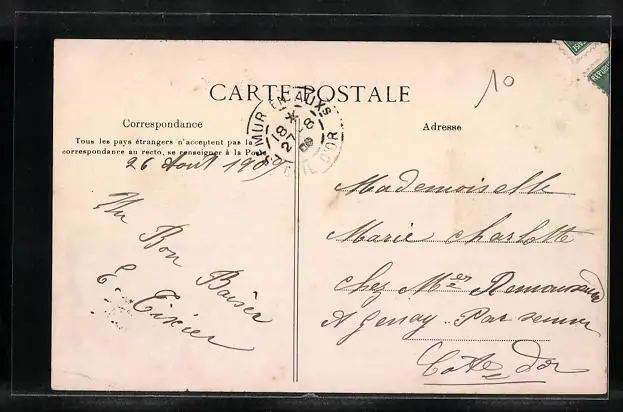 CARTE POSTALE
10
Correspondance
Adresse
Tous les pays étrangers n'acceptent pas la
correspondance au recto, se renseigner à la Poste
26 Aout 190
SEMUR EN AUXS
18 *
27-8
08
CÔTE D'OR
Un Bon Baiser
E. Tixier
Mademoiselle
Marie Charlotte
chez Mr
A Genay Par Semur
Côte d'or
REPUBL